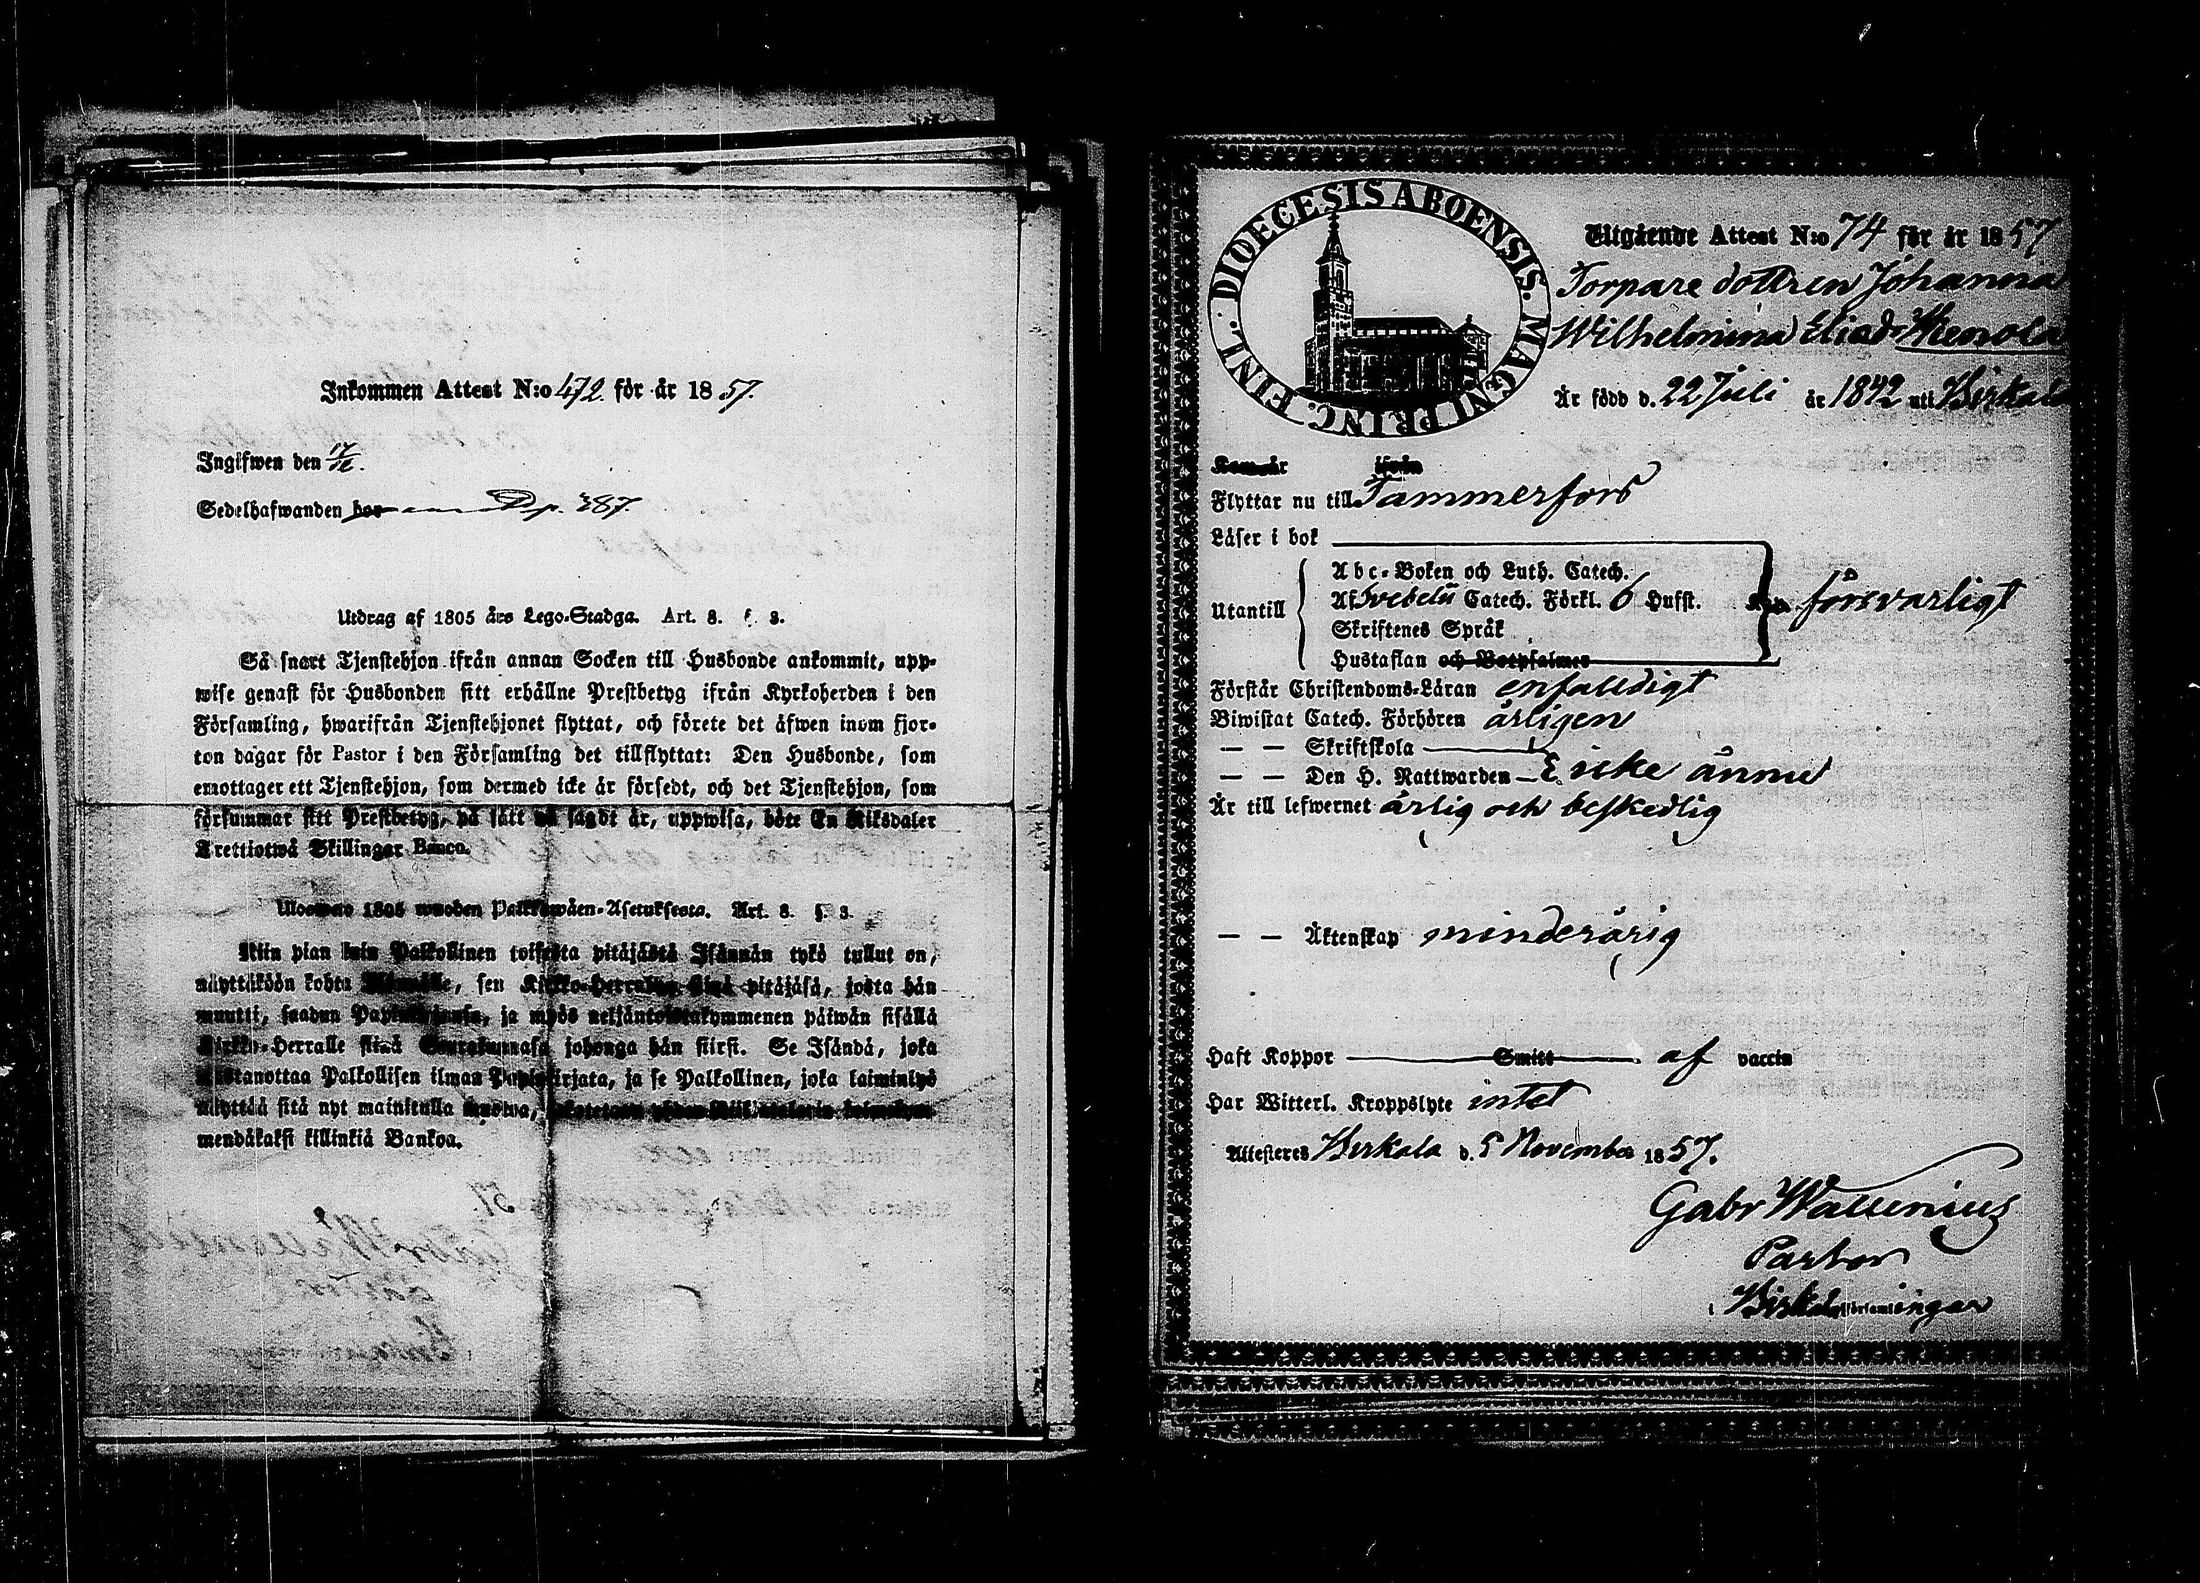 Inkommen Attest N:o 472. för år 1857.
Ingifwen den 17/12.
Sedelhafwanden bor p. 387.
Utdrag af 1805 års Lego-Stadga. Art. 8. §. 3.
Så snart Tjenstehjon ifrån annan Socken till Husbonde ankommit, upp-
wise genast för Husbonden sitt erhållne Prestbetyg ifrån Kyrkoherden i den
Församling, hwarifrån Tjenstehjonet flyttat, och förete det äfwen inom fjor-
ton dagar för Pastor i den Församling det tillflyttat: Den Husbonde, som
emottager ett Tjenstehjon, som dermed icke är försedt, och det Tjenstehjon, som
försummar sitt Prestbetyg, på sätt nu sagdt är, uppwisa, böte En Riksdaler
Trettiotwå Skillingar Banco.
Uloswto 1805 wuoden Palkkawäen-Asetuksesta. Art. 8. §. 3.
Niin pian kuin Palkollinen toisesta pitäjästä Isännän tykö tullut on,
näyttäköön kohta Isännälle, sen Kirkko-Herralta siinä pitäjäsä, josta hän
muutti, saadun Papinkirjansa, ja myös neljäntoistakymmenen päiwän sisällä
Kirkko-Herralle siinä Seurakunnasa johonga hän siirsi. Se Isändä, joka
wastanottaa Palkollisen ilman Papinkirjata, ja se Palkollinen, joka laiminlyö
näyttää sitä nyt mainitulla muotoa,
mendäkaksi killinkiä Bankoa.
DIOECESIS ABOENSIS. MAGNI PRINC. FINL.
Utgående Attest N:o 74 för år 1857
Torpare dottren Johanna
Wilhelmina Eliadr Kenola
Är född d. 22 Juli år 1842 uti Birkala
Kom år ifrån
Flyttar nu till Tammerfors
Läser i bok
Abc-Boken och Luth. Catech.
Utantill Af Svebelii Catech. Förkl. 6 Hufst. försvarligt
Skriftenes Språk
Hustaflan och Botpsalmer
Förstår Christendoms-Läran enfalldigt
Biwistat Catech. Förhören årligen
— — Skriftskola
— — Den H. Nattwarden icke ännu
Är till lefwernet ärlig och beskedlig
— — Äktenskap minderårig
Haft Koppor Smitt af vaccin
Har Witterl. Kroppslyte intet
Attesteres Birkala d. 5 November 1857.
Gabr Wallenius
Pastor
i Birkala församlingar